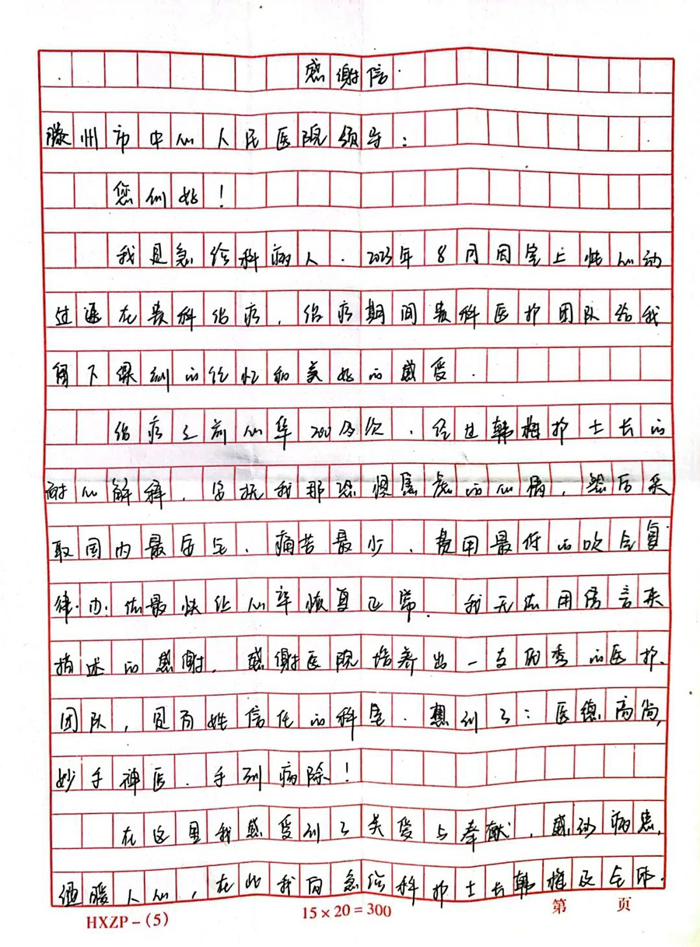 感谢信.
滕州市中心人民医院领导:
您们好!
我是急诊科病人.2023年8月因室上性心动
过速在贵科治疗,治疗期间贵科医护团队给我
留下深刻的记忆和美好的感受.
治疗之前心率200多次,经过韩梅护士长的
耐心解释,安抚我那恐惧焦虑的心情,然后采
取国内最先进,痛苦最少,费用最低的吹气复
律.办法最快让心率恢复正常.我无法用语言来
描述的感谢,感谢医院培养出一支优秀的医护.
团队,是百姓信任的科室.想到了:医德高尚,
妙手神医.手到病除!
在这里我感受到了关爱与奉献,感动病患,
温暖人心,在此我向急诊科护士长韩梅及全体.
HXZP-(5)
15×20=300
第 页